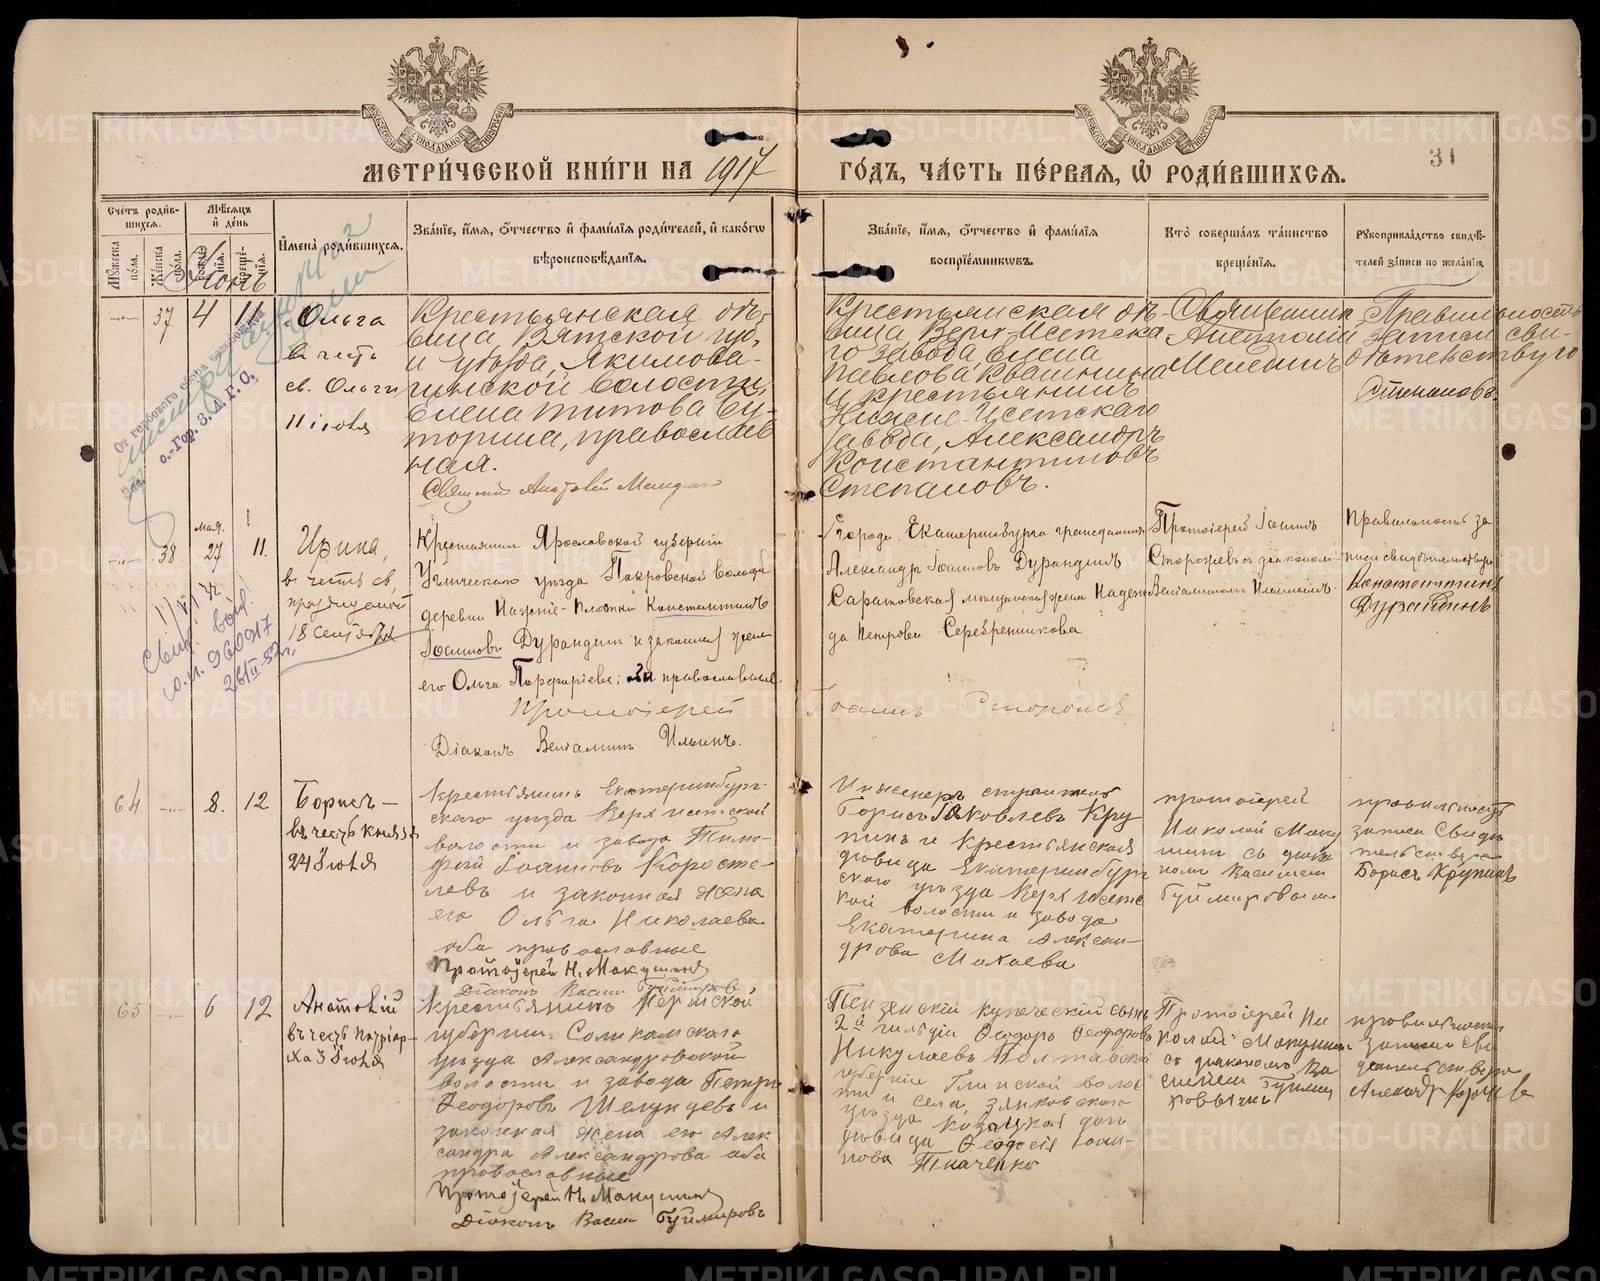 МЕТРИ́ЧЕСКОЙ КНИ́ГИ НА 1917
ГО́ДЪ, ЧА́СТЬ ПЕ́РВАЯ, Ѡ РОДИ́ВШИХСЯ.
31
Сче́тъ роди́вшихся.
Му́жеска по́ла.
Же́нска по́ла.
Мѣ́сяцъ и де́нь
Іюнь
рожде́нія.
креще́нія.
Имена̀ роди́вшихся.
Зва́ніе, и́мя, о́тчество и фами́лія роди́телей, и како́гѡ
вѣроисповѣ́данія.
Зва́ніе, и́мя, о́тчество и фами́лія
воспріе́мникωвъ.
Кто̀ соверша́лъ та́инство
креще́нія.
Рукоприкла́дство свидѣ́-
телей за́писи по жела́нію.
37
4
11
Ольга
въ честь
св. Ольги
11 іюля
Крестьянская дѣ-
вица, Вятской губ.
и уѣзда, Якимова-
гинской волости,
Елена Титова Бу-
торина, православ
ная.
Священникъ Анатолій
Крестьянская дѣ-
вица Верх-Исетска-
го завода Елена
Павлова Квашнина
и крестьянинъ
Нижне-Исетскаго
завода, Александръ
Константиновъ
Степановъ.
Священникъ
Анатолій
Правильность
записи сви-
дѣтельствую
Степановъ.
От гербового сбора
о.-Гор. З.А.Г.С.
38
мая.
27
11.
Ирина,
въ честь св.
праведной
18 сентября
Крестьянинъ Ярославской губерніи
Угличскаго уѣзда Покровской волости
деревни
Константинъ
Іоанновъ Дурандинъ и законная жена
его Ольга Порфиріева; оба православные.
Протоіерей
Діаконъ Веніаминъ Ильинъ.
Города Екатеринбурга гражданинъ
Александръ Іоанновъ Дурандинъ
Саратовская мѣщанская жена Надеж
да Петрова Серебренникова
Іоаннъ Сторожев
Протоіерей Іоаннъ
Сторожевъ съ діакономъ
Веніаминомъ Ильинымъ.
Правильность за
писи свидѣтельствую
Константинъ
Дурандинъ
Свид.
ю.и. 960917
26/II-52г.
64
8.
12
Борисъ —
въ честь князя
24 Іюля
Крестьянинъ Екатеринбург-
скаго уѣзда Верх исетской
волости и завода Тимо-
фей Іоанновъ Коросте-
левъ и законная жена
его Ольга Николаева
оба православные
Протоіерей Н. Макушинъ
Діаконъ Васил. Буймировъ
Инженеръ строитель
Борисъ Яковлевъ Кру
пинъ и крестьянская
дѣвица Екатеринбург
скаго уѣзда Верх исетс
кой волости и завода
Екатерина Алексан-
дрова Махаева
протоіерей
Николай Маку
шинъ съ діако
номъ Василіем
Буймировымъ
правильность
записи Свидѣ
тельствую
Борисъ Крупинъ
65
6
12
Анатолій
въ честь патріар-
ха 3 Іюля
Крестьянинъ Пермской
губерніи Соликамскаго
уѣзда Александровской
волости и завода Петръ
Ѳеодоровъ Шелунцевъ и
законная жена его Алек
сандра Александрова оба
православные
Протоіерей Н. Макушинъ
Діаконъ Васил Буймировъ
Пензенскій купеческій сынъ
2й гильдіи Ѳеодоръ Ѳеодоровъ
Никулаевъ Полтавской
губерніи Глинской волос
ти и села, Зинковскаго
уѣзда казацкая дочь
дѣвица Ѳеодосія Іоан-
нова Ткаченко
Протоіерей Ни
колай Макушинъ
съ діакономъ Ва
силіемъ Буйми
ровымъ
правильность
записи Сви
дѣтельствую
METRIKI.GASO-URAL.RU